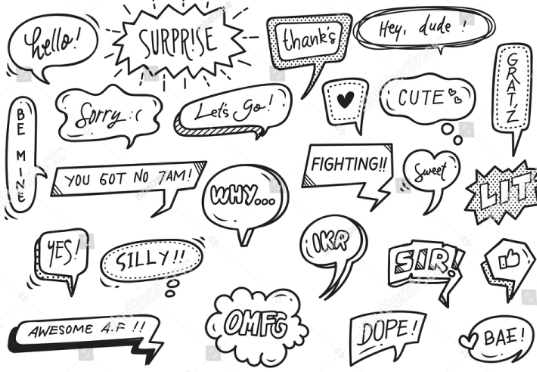 hello!
SURPRISE
thank's
Hey, dude !
GRATZ
BE MINE
Sorry :(
Let's Go!
CUTE
YOU GOT NO 7AM!
WHY...
FIGHTING!!
Sweet
LIT
YES!
SILLY!!
IKR
SIR!
AWESOME A.F !!
OMFG
DOPE!
BAE!